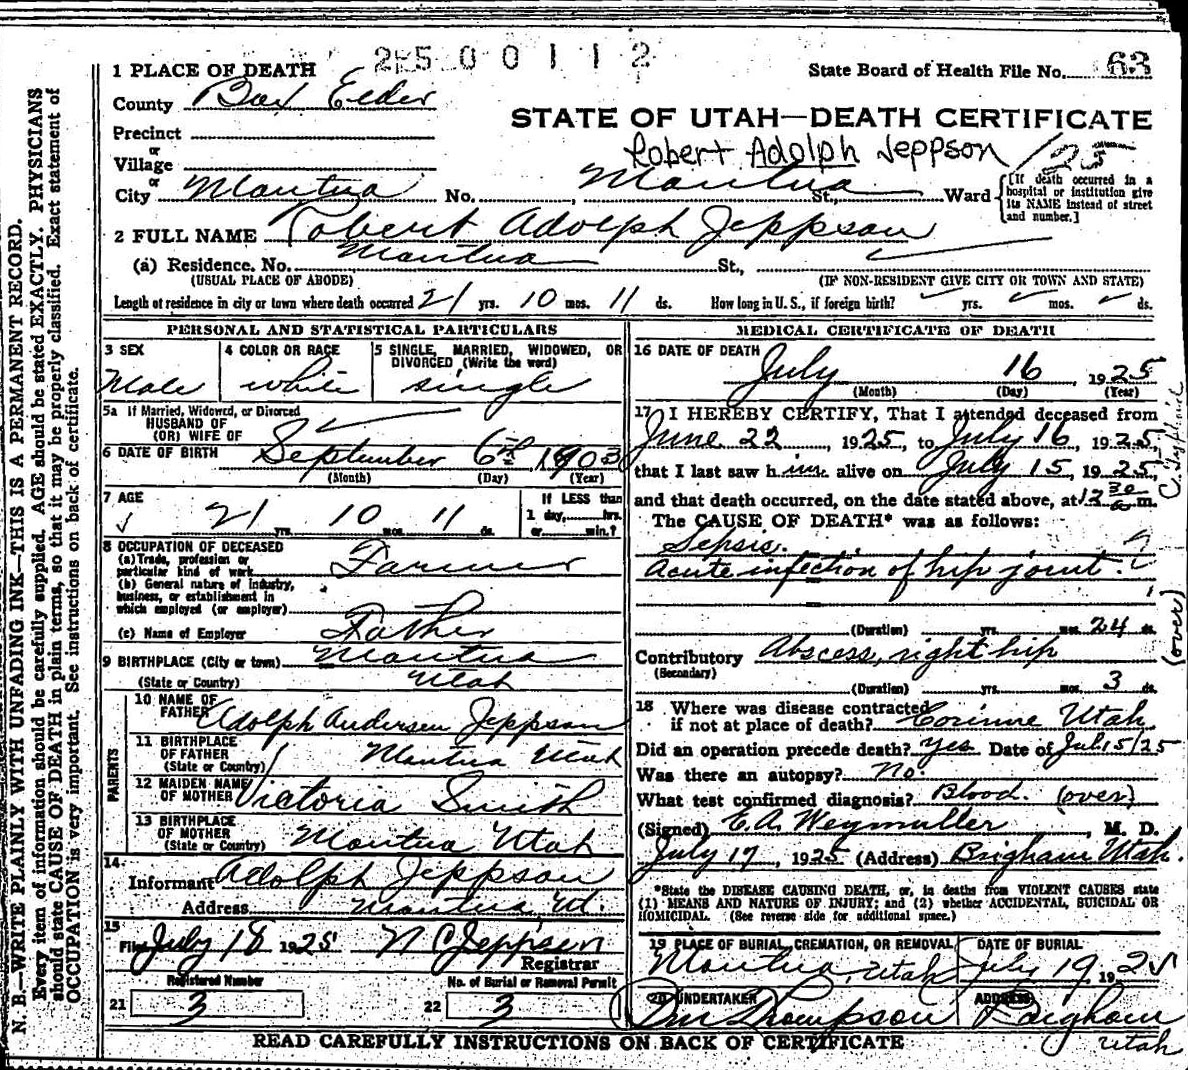 2500112
1 PLACE OF DEATH
State Board of Health File No. 63
County Box Elder
STATE OF UTAH—DEATH CERTIFICATE
Precinct
or
Village
Robert Adolph Jeppson /25
or
City Mantua No. , Mantua St., Ward
[If death occurred in a hospital or institution give its NAME instead of street and number.]
2 FULL NAME Robert Adolph Jeppson
(a) Residence. No. Mantua St.,
(USUAL PLACE OF ABODE) (IF NON-RESIDENT GIVE CITY OR TOWN AND STATE)
Length of residence in city or town where death occurred 21 yrs. 10 mos. 11 ds. How long in U.S., if foreign birth? yrs. mos. ds.
PERSONAL AND STATISTICAL PARTICULARS
3 SEX
Male
4 COLOR OR RACE
white
5 SINGLE, MARRIED, WIDOWED, OR DIVORCED (Write the word)
single
5a If Married, Widowed, or Divorced
HUSBAND OF
(OR) WIFE OF
6 DATE OF BIRTH September 6th, 1903
(Month) (Day) (Year)
7 AGE
21 yrs. 10 mos. 11 ds.
If LESS than
1 day, hrs.
or min.?
8 OCCUPATION OF DECEASED
(a) Trade, profession or
particular kind of work Farmer
(b) General nature of industry,
business, or establishment in
which employed (or employer)
(c) Name of Employer Father
9 BIRTHPLACE (City or town) Mantua
(State or Country) Utah
PARENTS
10 NAME OF
FATHER Adolph Andersen Jeppson
11 BIRTHPLACE
OF FATHER
(State or Country) Mantua Utah
12 MAIDEN NAME
OF MOTHER Victoria Smith
13 BIRTHPLACE
OF MOTHER
(State or Country) Mantua Utah
14
Informant Adolph Jeppson
Address Mantua, Ut.
15
Filed July 18 1925 N C Jeppsen
Registrar
Registered Number
21 3
No. of Burial or Removal Permit
22 3
MEDICAL CERTIFICATE OF DEATH
16 DATE OF DEATH
July 16 1925
(Month) (Day) (Year)
17 I HEREBY CERTIFY, That I attended deceased from
June 22, 1925, to July 16, 1925,
that I last saw him alive on July 15, 1925,
and that death occurred, on the date stated above, at 12 30 a m.
The CAUSE OF DEATH* was as follows:
Sepsis.
Acute infection of hip joint. ?
(Duration) yrs. mos. 24 ds.
(over)
Contributory Abscess, right hip
(Secondary)
(Duration) yrs. mos. 3 ds.
18 Where was disease contracted
if not at place of death? Corinne Utah
Did an operation precede death? yes Date of Jul 15/25
Was there an autopsy? no.
What test confirmed diagnosis? Blood. (over)
(Signed) E. A. Weymuller, M. D.
July 17, 1925 (Address) Brigham Utah.
*State the DISEASE CAUSING DEATH, or, in deaths from VIOLENT CAUSES state
(1) MEANS AND NATURE OF INJURY; and (2) whether ACCIDENTAL, SUICIDAL OR
HOMICIDAL. (See reverse side for additional space.)
19 PLACE OF BURIAL, CREMATION, OR REMOVAL
Mantua, Utah
DATE OF BURIAL
July 19, 1925
20 UNDERTAKER
Thompson
ADDRESS
Brigham
Utah
READ CAREFULLY INSTRUCTIONS ON BACK OF CERTIFICATE
N. B.—WRITE PLAINLY WITH UNFADING INK—THIS IS A PERMANENT RECORD.
Every item of information should be carefully supplied. AGE should be stated EXACTLY. PHYSICIANS
should state CAUSE OF DEATH in plain terms, so that it may be properly classified. Exact statement of
OCCUPATION is very important. See instructions on back of certificate.